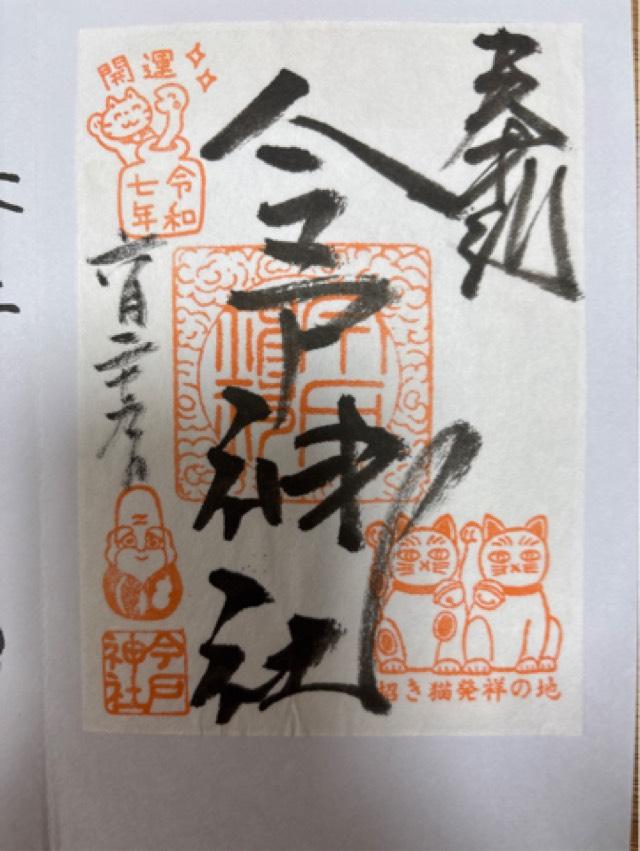 奉拝
今戸神社
開運
令和
七年
六月二十九日
今戸
神社
招き猫発祥の地